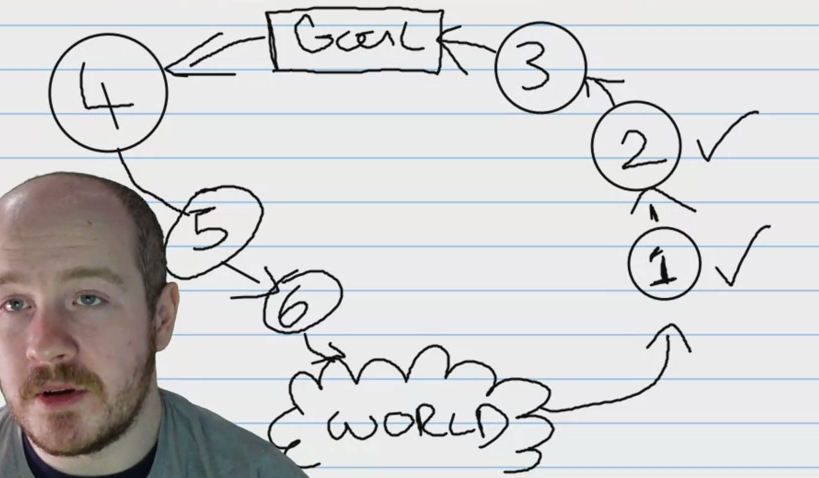 Goal
3
4
2 ✓
5
1 ✓
6
WORLD